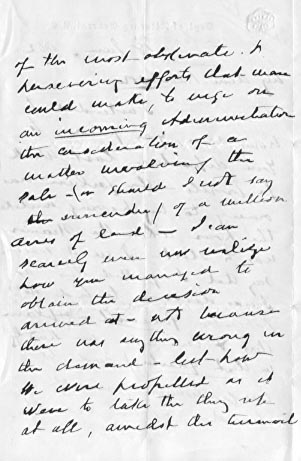 of the most obstinate &
persevering efforts that man
could make, to urge on
an incoming Administration
the consideration of a
matter involving the
sale – (or should I not say
the surrender) of a million
acres of land – I can
scarcely even now realize
how you managed to
obtain the decision
arrived at – not because
there was anything wrong in
the demand – but how
we were propelled as it
were to take the thing up
at all, amidst the turmoil